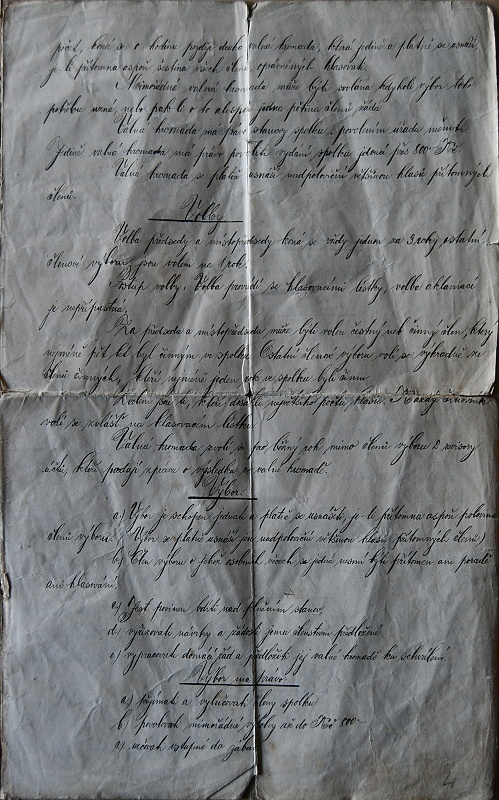 počet, koná se o hodinu později druhá valná hromada, která jedná a platně se usnáší,
je-li přítomna aspoň šestina všech členů, oprávněných hlasovati.
Mimořádná valná hromada může býti svolána kdykoli výbor toho
potřebu uzná, nebo pak-li o to alespoň jedna pětina členů žádá.
Valná hromada má právo stanovy spolku s povolením úřadu měniti
Jedině valná hromada má právo povoliti vydání spolku jdoucí přes 800.- Kč
Valná hromada se platně usnáší nadpoloviční většinou hlasů přítomných
členů.
Volby
Volba předsedy a místopředsedy koná se vždy jednou za 3 roky ostatní
členové výboru jsou voleni na 1 rok.
Postup volby: Volba provádí se hlasovacími lístky, volba aklamací
je nepřípustná.
Za předsedu a místopředsedu může býti volen čestný neb činný člen, který
nejméně pět let byl činným ve spolku. Ostatní členové výboru volí se výhradně ze
členů činných, kteří nejméně jeden rok ve spolku byli činni.
Zvoleni jsou ti, kteří docílí největšího počtu hlasů. Každý
volí se zvlášť na hlasovacím lístku.
Valná hromada zvolí si pro běžný rok mimo členů výboru 2 revisory
účtů, kteří podají zprávu o výsledku na valné hromadě.
Výbor
a) Výbor je schopen jednati a platně se usnášeti, je-li přítomna aspoň polovina
členů výboru. (Výbor se platně usnáší jen nadpoloviční většinou hlasů přítomných členů.)
b) Člen výboru o jehož osobních věcech se jedná nesmí býti přítomen ani poradě
ani hlasování.
c) Jest povinen bdíti nad plněním stanov
d) vyřizovati návrhy a žádosti jemu členstvem předložené
e) vypracovati domácí řád a předložiti jej valné hromadě ku schválení.
Výbor má právo:
a) přijímati a vylučovati členy spolku
b) povolovati mimořádné výlohy až do Kč 800.-
c) určovati vstupné do zábav
4